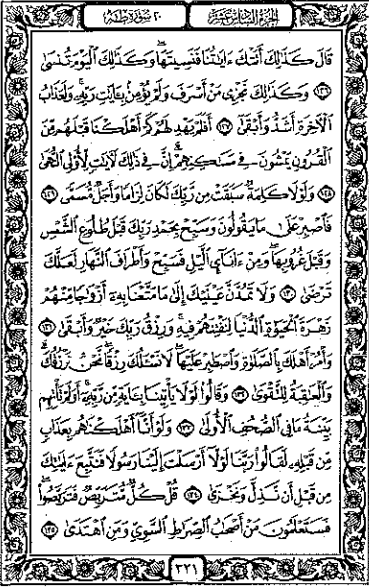 الجزء السادس عشر
٢٠ سورة طه
قَالَ كَذَٰلِكَ أَتَتْكَ ءَايَٰتُنَا فَنَسِيتَهَا وَكَذَٰلِكَ الْيَوْمَ تُنسَىٰ
١٢٦ وَكَذَٰلِكَ نَجْزِى مَنْ أَسْرَفَ وَلَمْ يُؤْمِنۢ بِـَٔايَٰتِ رَبِّهِۦ وَلَعَذَابُ
الْءَاخِرَةِ أَشَدُّ وَأَبْقَىٰٓ ١٢٧ أَفَلَمْ يَهْدِ لَهُمْ كَمْ أَهْلَكْنَا قَبْلَهُم مِّنَ
الْقُرُونِ يَمْشُونَ فِى مَسَٰكِنِهِمْ إِنَّ فِى ذَٰلِكَ لَءَايَٰتٍ لِّأُو۟لِى النُّهَىٰ
١٢٨ وَلَوْلَا كَلِمَةٌ سَبَقَتْ مِن رَّبِّكَ لَكَانَ لِزَامًا وَأَجَلٌ مُّسَمًّى ١٢٩
فَاصْبِرْ عَلَىٰ مَا يَقُولُونَ وَسَبِّحْ بِحَمْدِ رَبِّكَ قَبْلَ طُلُوعِ الشَّمْسِ
وَقَبْلَ غُرُوبِهَا وَمِنْ ءَانَآئِ الَّيْلِ فَسَبِّحْ وَأَطْرَافَ النَّهَارِ لَعَلَّكَ
تَرْضَىٰ ١٣٠ وَلَا تَمُدَّنَّ عَيْنَيْكَ إِلَىٰ مَا مَتَّعْنَا بِهِۦٓ أَزْوَٰجًا مِّنْهُمْ
زَهْرَةَ الْحَيَوٰةِ الدُّنْيَا لِنَفْتِنَهُمْ فِيهِ وَرِزْقُ رَبِّكَ خَيْرٌ وَأَبْقَىٰ ١٣١
وَأْمُرْ أَهْلَكَ بِالصَّلَوٰةِ وَاصْطَبِرْ عَلَيْهَا لَا نَسْـَٔلُكَ رِزْقًا نَّحْنُ نَرْزُقُكَ
وَالْعَٰقِبَةُ لِلتَّقْوَىٰ ١٣٢ وَقَالُوا۟ لَوْلَا يَأْتِينَا بِـَٔايَةٍ مِّن رَّبِّهِۦٓ أَوَلَمْ تَأْتِهِم
بَيِّنَةُ مَا فِى الصُّحُفِ الْأُولَىٰ ١٣٣ وَلَوْ أَنَّآ أَهْلَكْنَٰهُم بِعَذَابٍ
مِّن قَبْلِهِۦ لَقَالُوا۟ رَبَّنَا لَوْلَآ أَرْسَلْتَ إِلَيْنَا رَسُولًا فَنَتَّبِعَ ءَايَٰتِكَ
مِن قَبْلِ أَن نَّذِلَّ وَنَخْزَىٰ ١٣٤ قُلْ كُلٌّ مُّتَرَبِّصٌ فَتَرَبَّصُوا۟
فَسَتَعْلَمُونَ مَنْ أَصْحَٰبُ الصِّرَٰطِ السَّوِىِّ وَمَنِ اهْتَدَىٰ ١٣٥
٣٢١